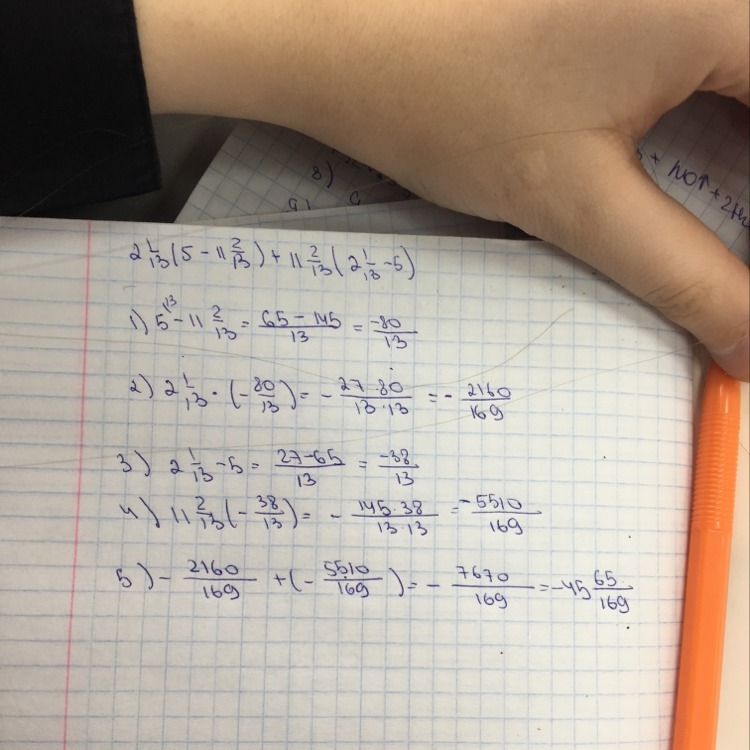 8)
9)
+ NOT + 2H
2 1/13 (5 - 11 2/13) + 11 2/13 (2 1/13 - 5)
1) 5^(13 - 11 2/13 = (65 - 145)/13 = -80/13
2) 2 1/13 · (- 80/13) = - (27 · 80)/(13 · 13) = - 2160/169
3) 2 1/13 - 5 = (27 - 65)/13 = -38/13
4) 11 2/13 (- 38/13) = - (145 · 38)/(13 · 13) = -5510/169
5) - 2160/169 + (- 5510/169) = - 7670/169 = -45 65/169